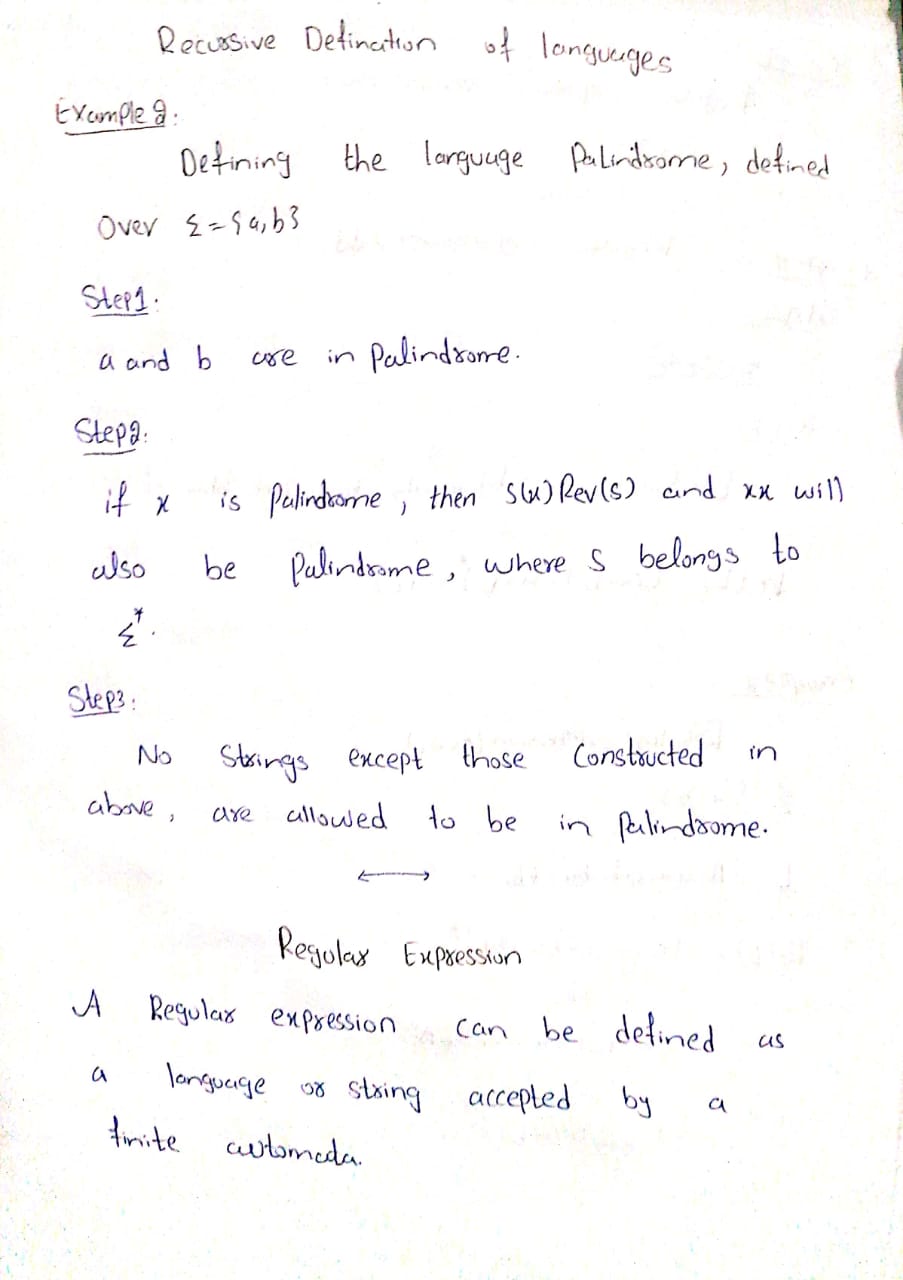 Recursive Defination of languages
Example 2:
Defining the language Palindrome, defined
Over Σ={a,b}
Step1:
a and b are in Palindrome.
Step2:
if x is Palindrome, then s(x)Rev(s) and xx will
also be Palindrome, where S belongs to
Σ*.
Step3:
No Strings except those Constructed in
above, are allowed to be in Palindrome.
Regular Expression
A Regular expression can be defined as
a language or string accepted by a
finite automada.